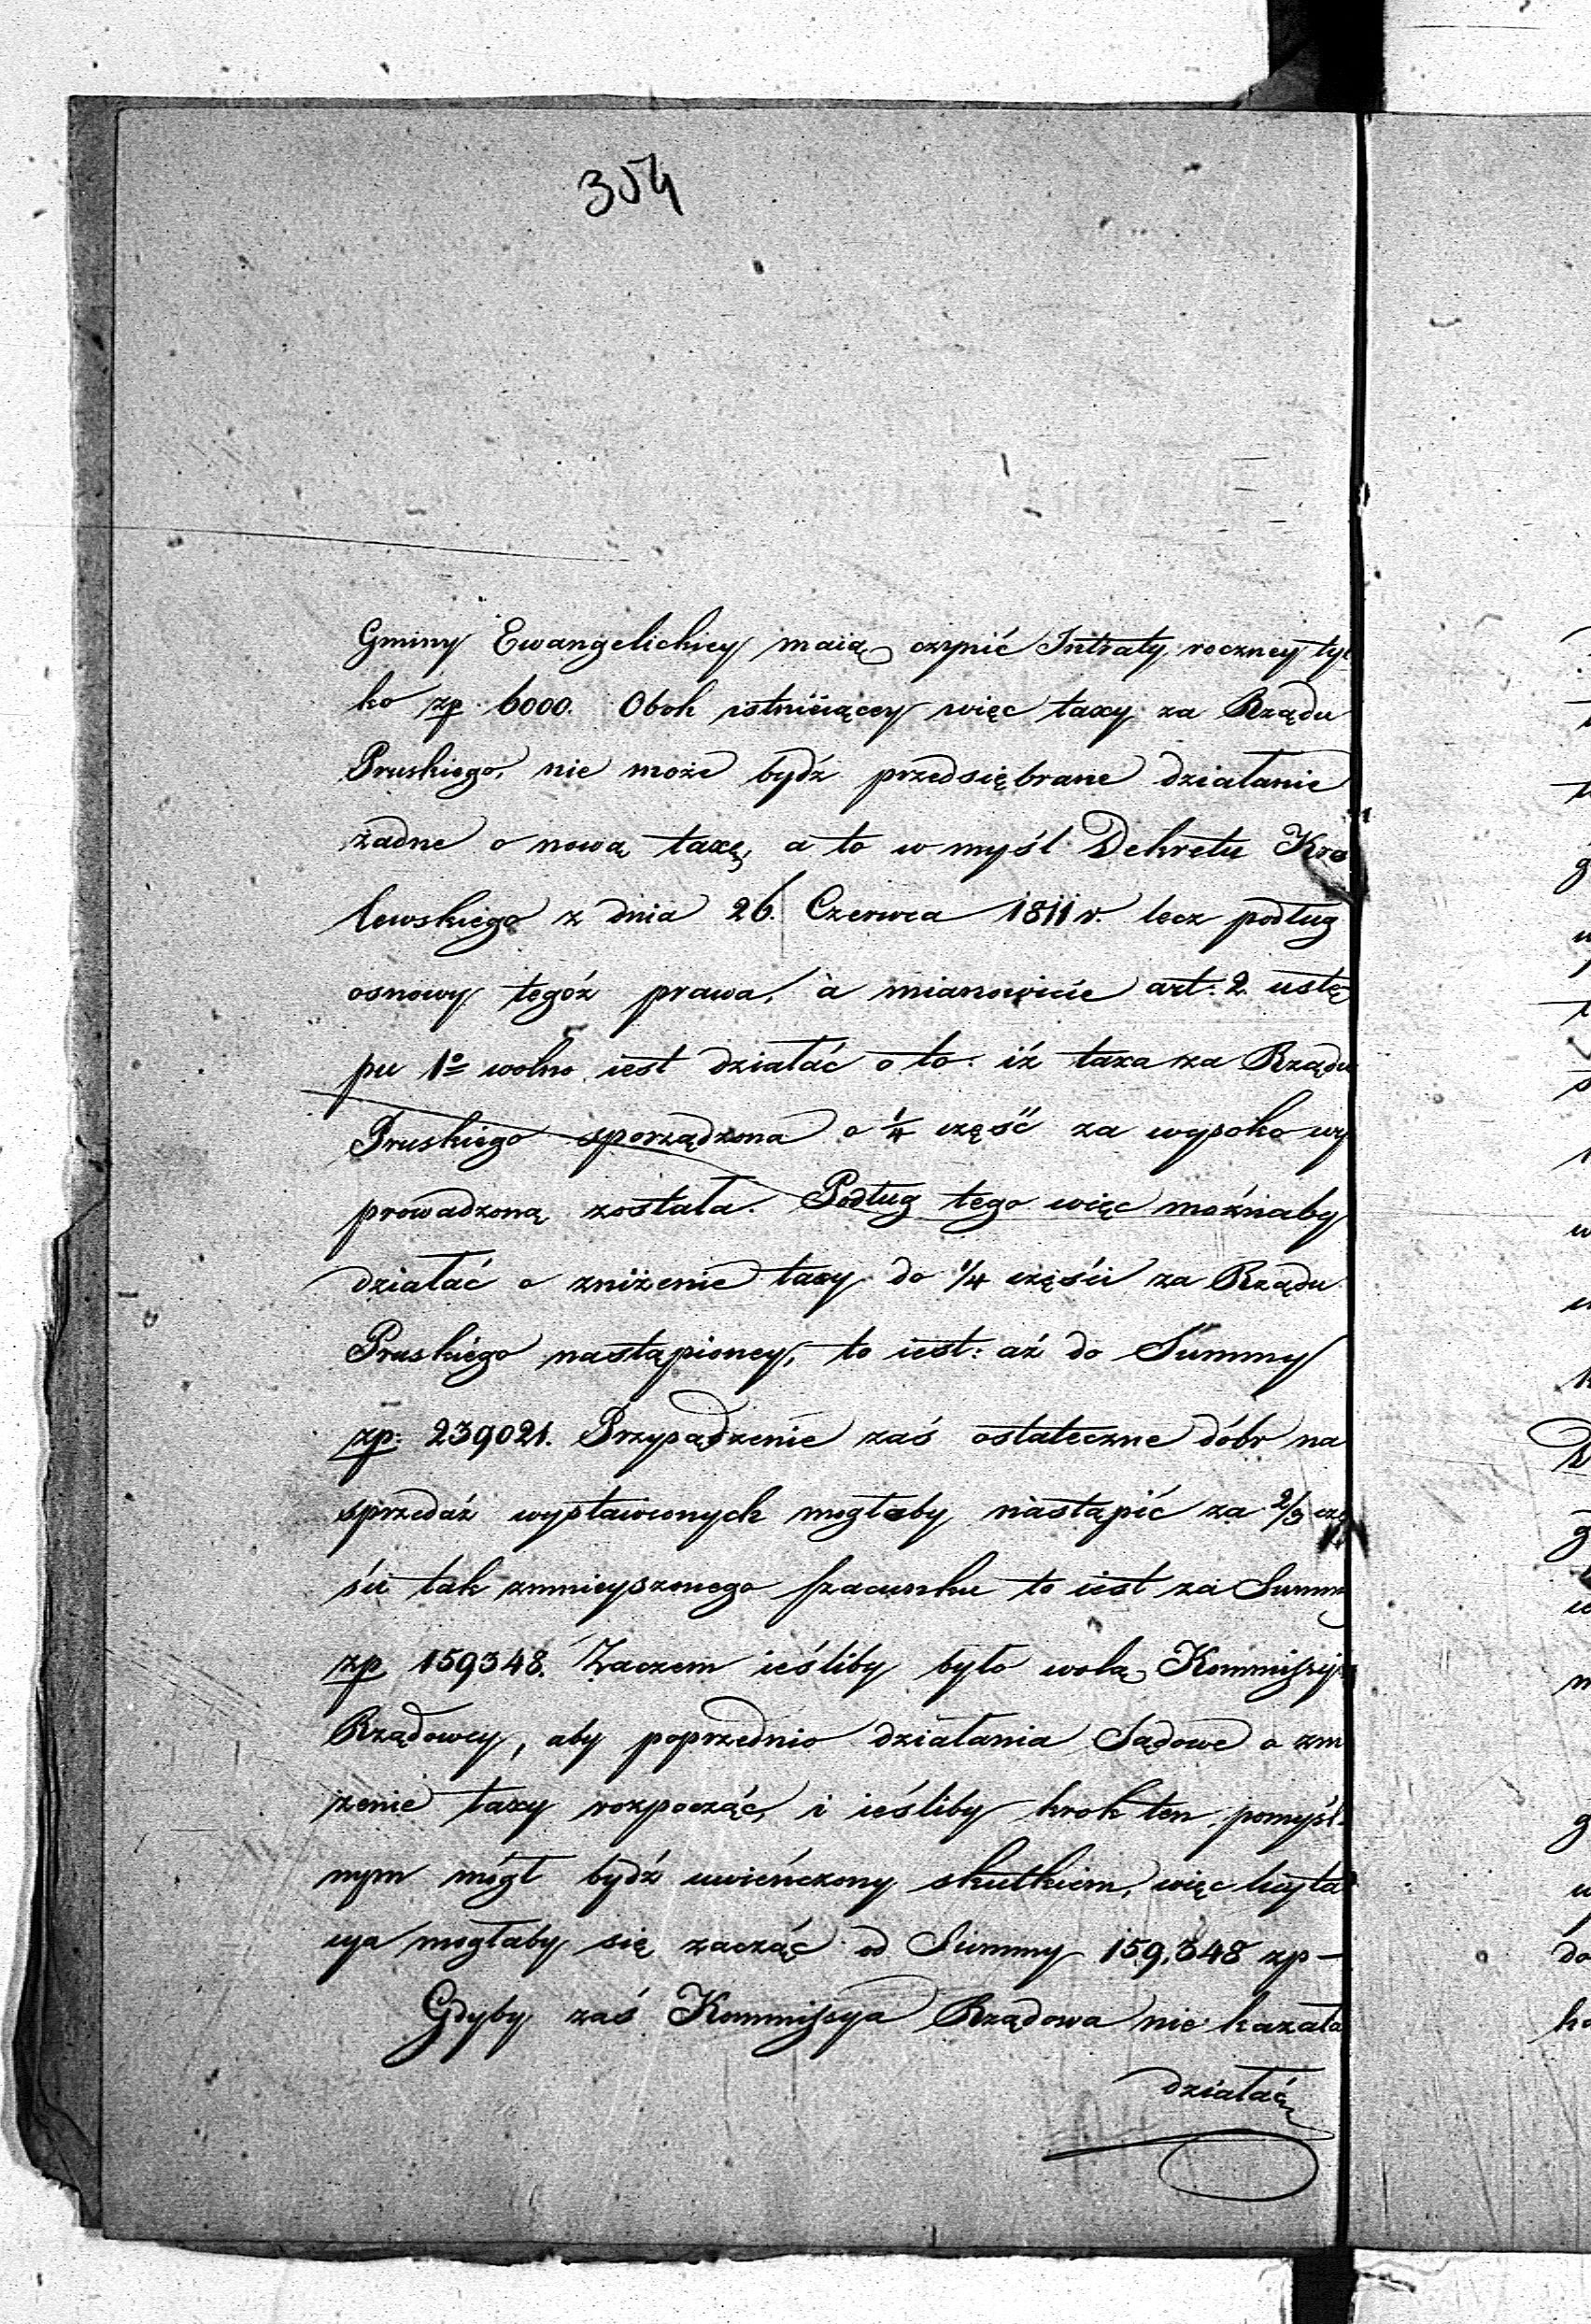 354
Gminy Ewangelickiey maią czynić Intraty roczney tyl
ko zp. 6000. Obok istnieiącey więc taxy za Rządu
Pruskiego, nie może bydź przedsiębrane działanie
żadne o nową taxę, a to w myśl Dekretu Kro
lewskiego z dnia 26. Czerwca 1811 r. lecz podług
osnowy tegoż prawa, a mianowicie art: 2. ustę
pu 1º wolno iest działać o to: iż taxa za Rządu
Pruskiego sporządzona o 1/4 część za wysoko wy
prowadzoną została. Podług tego więc możnaby
działać o zniżenie taxy do 1/4 części za Rządu
Pruskiego nastąpioney, to iest: aż do Summy
zp: 239021. Przysądzenie zaś ostateczne dóbr na
sprzedaż wystawionych mogłoby nastąpić za 2/3 czę
ści tak zmnieyszonego szacunku to iest za Summę
zp 159348. Zaczem ieśliby było wolą Kommissyi
Rządowey, aby poprzednio działania Sądowe o zni
żenie taxy rozpocząć, i ieśliby krok ten pomyśl-
nym mógł bydź uwieńczony skutkiem, więc licyta
cya mogłaby się zacząć od Summy 159,348 zp –
Gdyby zaś Kommissya Rządowa nie kazała
działać